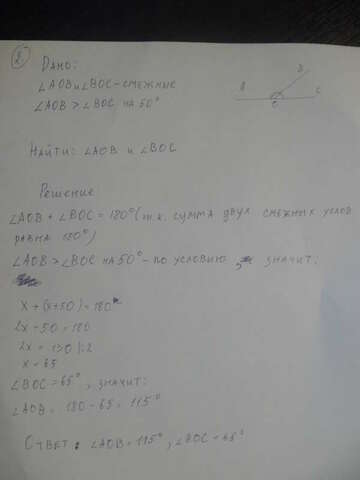 2.
Дано:
∠AOB и ∠BOC - смежные
∠AOB > ∠BOC на 50°
A B C
O
Найти: ∠AOB и ∠BOC
Решение
∠AOB + ∠BOC = 180° (т.к. сумма двух смежных углов
равна 180°)
∠AOB > ∠BOC на 50° - по условию, значит:
x + (x+50) = 180
2x - 50 = 180
2x = 130 |:2
x = 65
∠BOC = 65°, значит:
∠AOB = 180 - 65 = 115°
Ответ: ∠AOB = 115°, ∠BOC = 65°